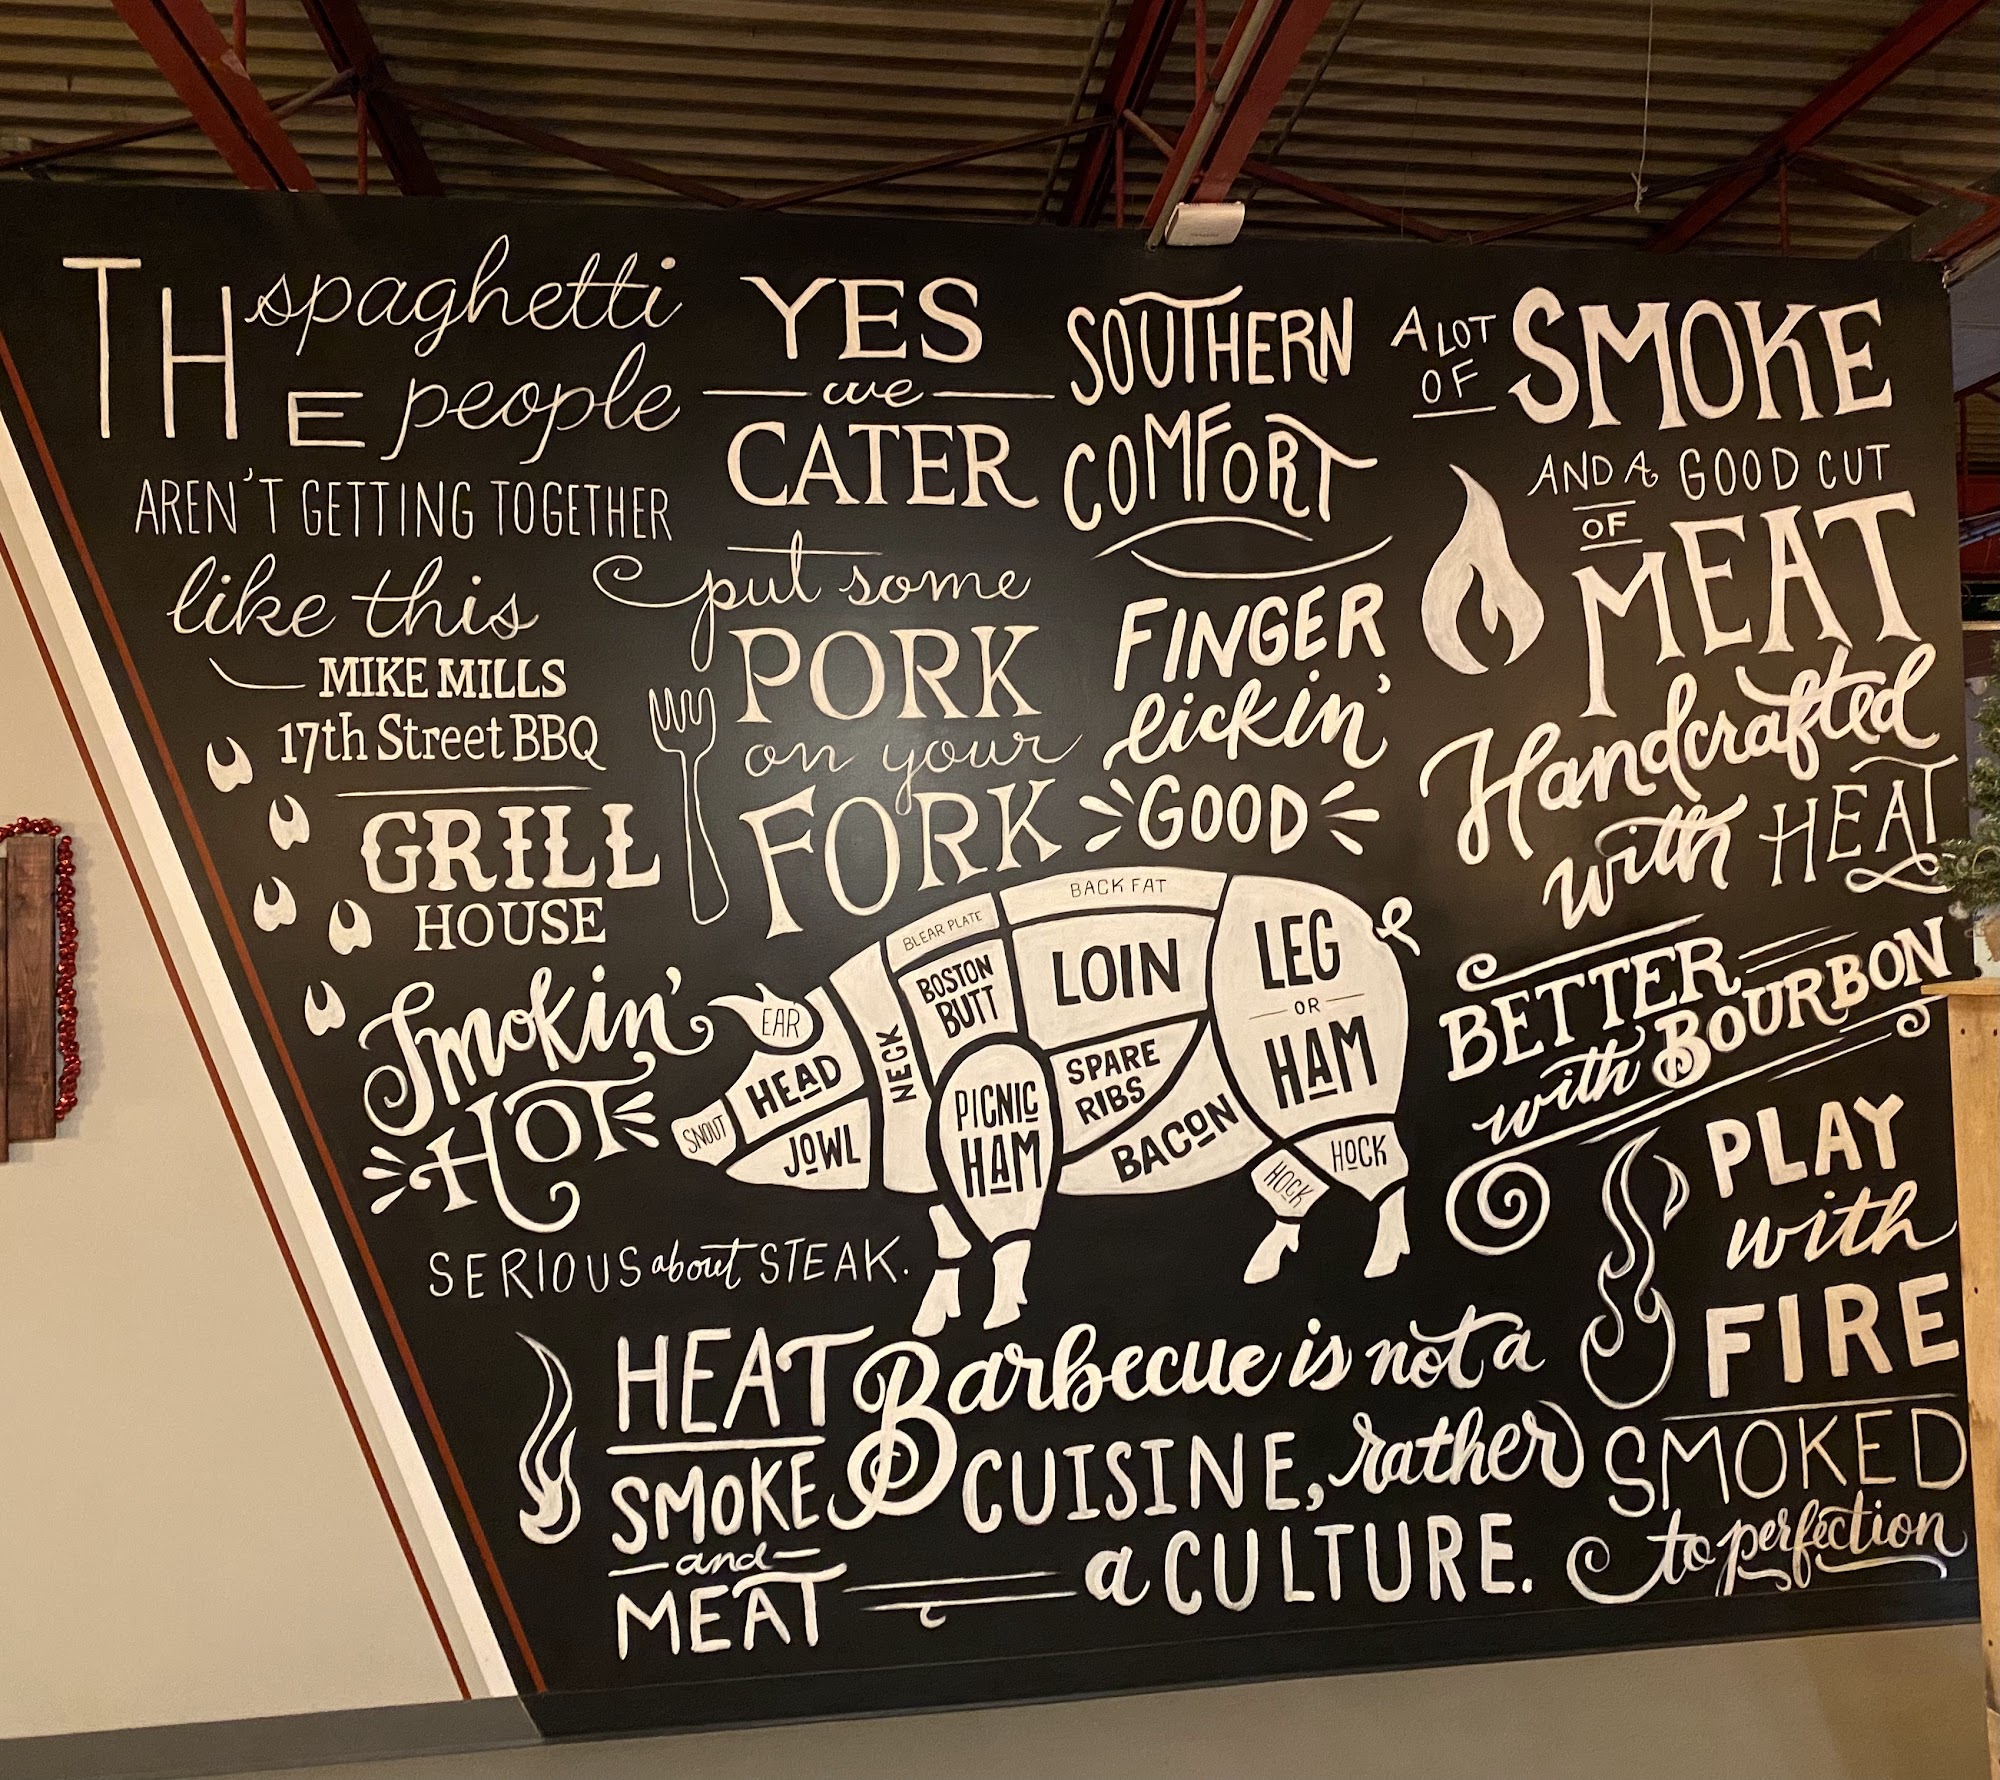 THE spaghetti
people
AREN'T GETTING TOGETHER
like this
MIKE MILLS
17th Street BBQ
GRILL
HOUSE
Smokin'
HOT
SERIOUS about STEAK.
YES
we
CATER
put some
PORK
on your
FORK
SOUTHERN
COMFORT
FINGER
lickin'
GOOD
A LOT
OF
SMOKE
AND A GOOD CUT
OF
MEAT
Handcrafted
with HEAT
BETTER
with BOURBON
PLAY
with
FIRE
SMOKED
to perfection
EAR
HEAD
SNOUT
JOWL
NECK
BLEAR PLATE
BOSTON
BUTT
PICNIC
HAM
BACK FAT
LOIN
SPARE
RIBS
BACON
LEG
OR
HAM
HOCK
HOCK
HEAT
SMOKE
and
MEAT
Barbecue is not a
CUISINE, rather
a CULTURE.